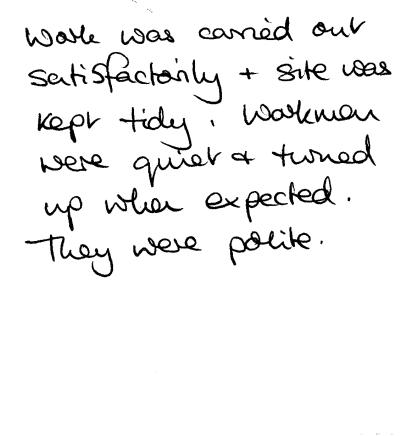 Work was carried out
satisfactorily + site was
kept tidy. Workmen
were quiet & turned
up when expected.
They were polite.